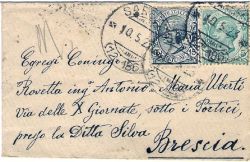 10.5.2
(MILANO)
Egregi Coniugi
Rovetta ing. Antonio e Maria Uberti
Via delle X Giornate, sotto i Portici
presso la Ditta Silva
Brescia